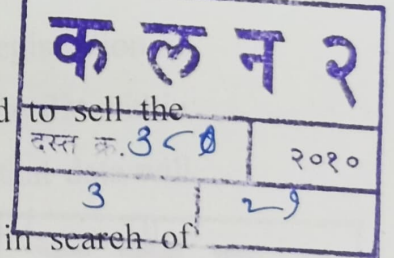 क ल न २
to sell the
दस्त क्र. २०१०
3
in search of